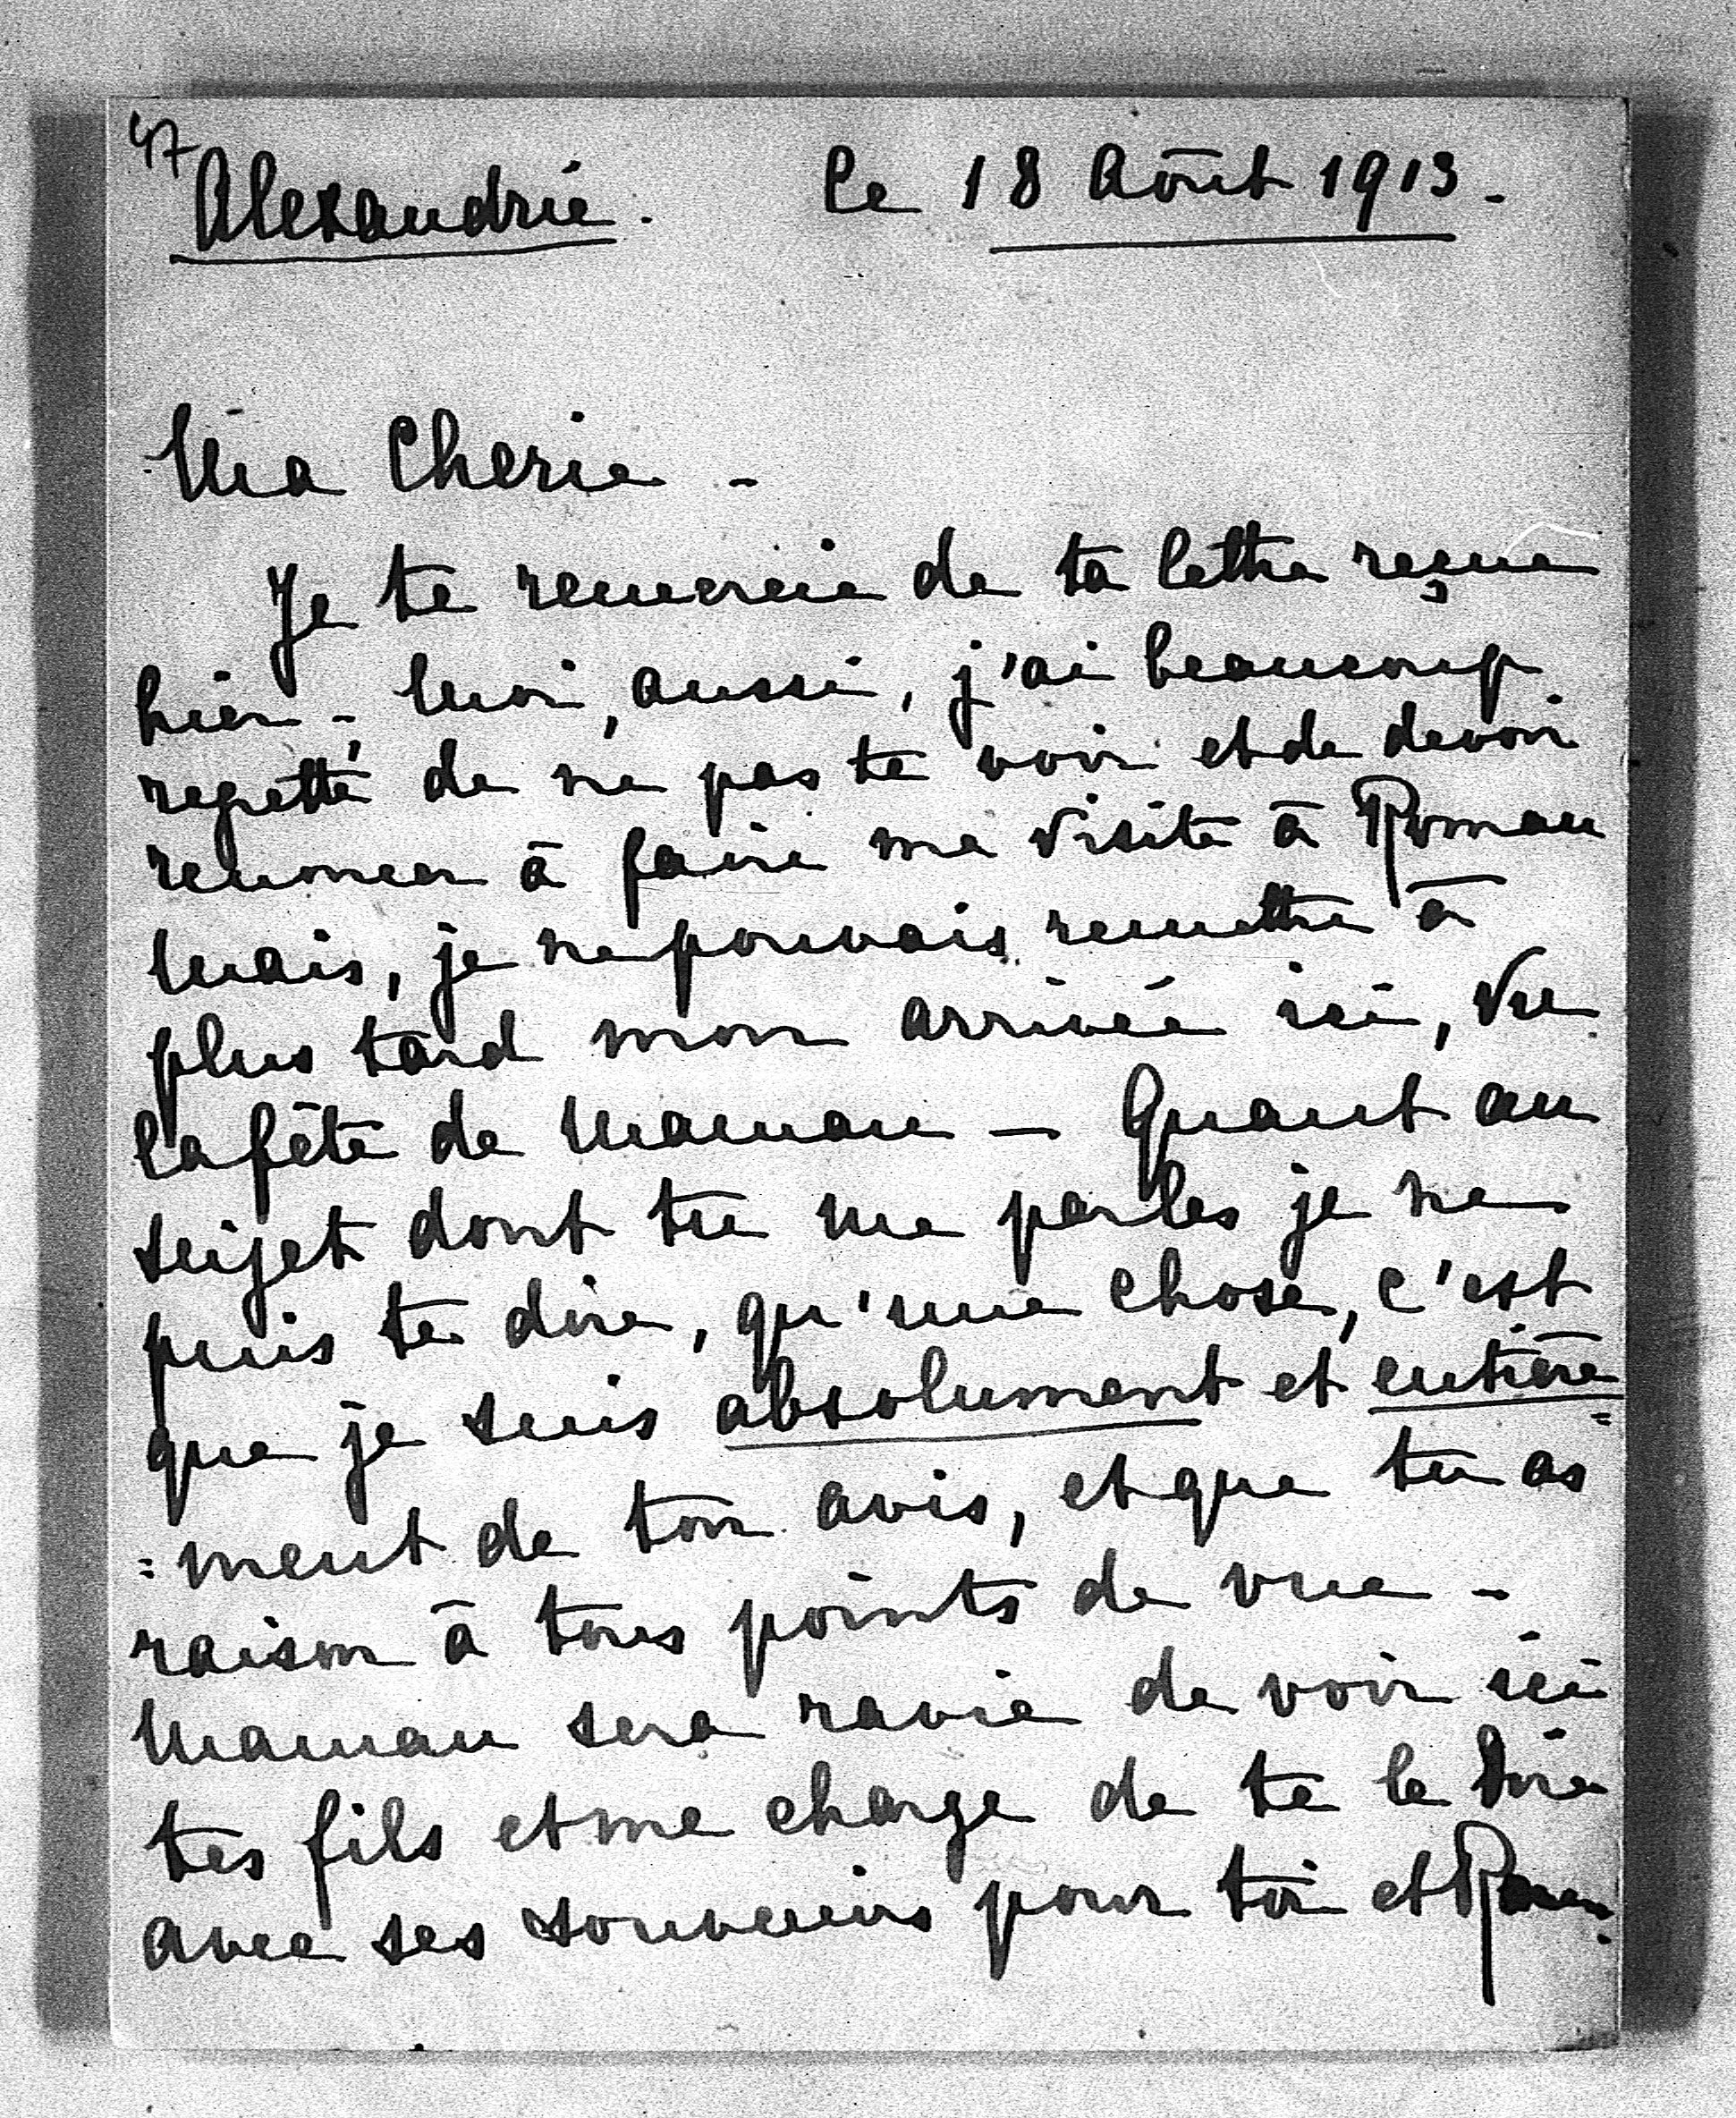 47
Alexandrie. le 18 Août 1913.
Ma Cherie -
Je te remercie de ta lettre reçue
hier - Moi, aussi, j'ai beaucoup
regretté de ne pas te voir et de devoir
renoncer à faire ma visite à Roman
Mais, je ne pouvais remettre à
plus tard mon arrivée ici, vu
la fête de Maman — Quant au
sujet dont tu me parles je ne
puis te dire, qu'une chose, c'est
que je suis absolument et entière=
=ment de ton avis, et que tu as
raison à tous points de vue -
Maman sera ravie de voir ici
tes fils et me charge de te le dire
avec ses souvenirs pour toi et